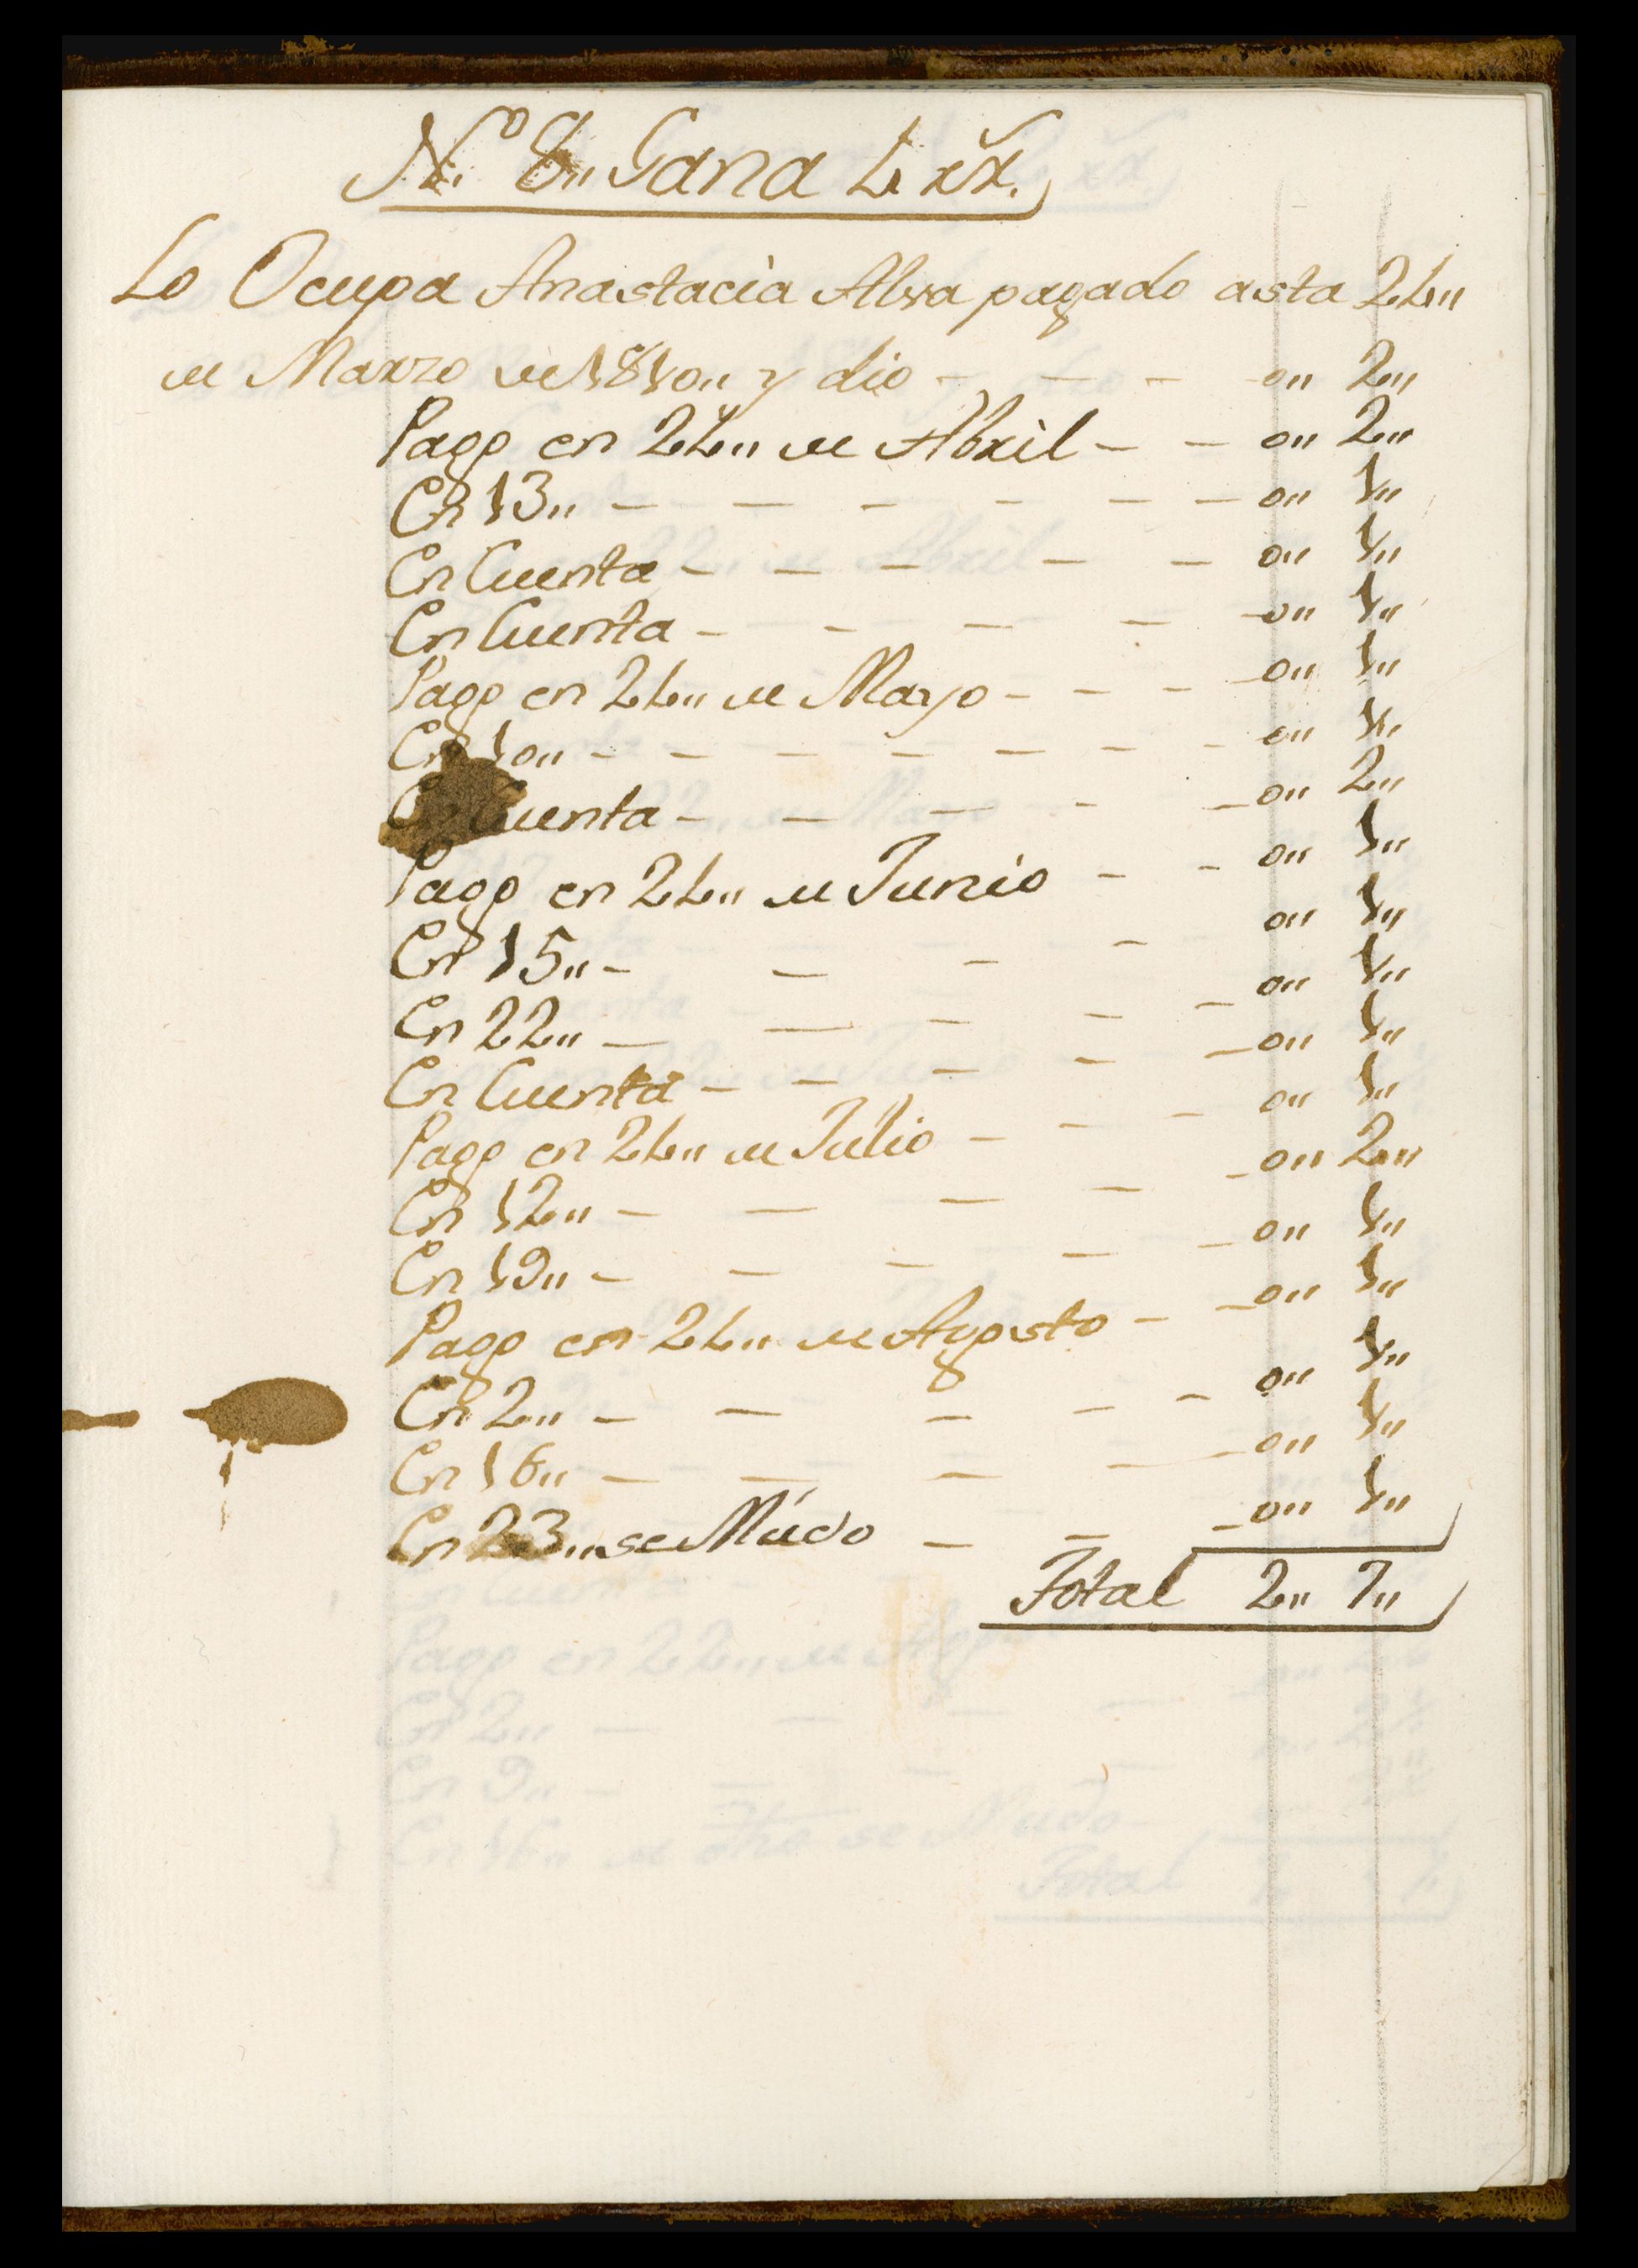 Nº 8,, Gana 4 rr.
Lo Ocupa Anastacia Alva pagado asta 24,,
de Marzo de 1810,, y dio - - - 0,, 2,,
Pago en 24,, de Abril - - 0,, 2,,
En 13,, - - - - - - 0,, 1,,
En Cuenta - - - - - 0,, 1,,
En Cuenta - - - - - 0,, 1,,
Pago en 24,, de Mayo - - - - 0,, 1,,
En 10,, - - - - - - - 0,, 1,,
En Cuenta - - - - - 0,, 2,,
Pago en 24,, de Junio - - 0,, 1,,
En 15,, - - - - 0,, 1,,
En 22,, - - - - - 0,, 1,,
En Cuenta - - - - - 0,, 1,,
Pago en 24,, de Julio - - - 0,, 1,,
En 12,, - - - - - 0,, 2,,
En 19,, - - - - - 0,, 1,,
Pago en 24,, de Agosto - - 0,, 1,,
En 2,, - - - - - 0,, 1,,
En 16,, - - - - - 0,, 1,,
En 23,, se Mudo - - - 0,, 1,,
Total 2,, 7,,